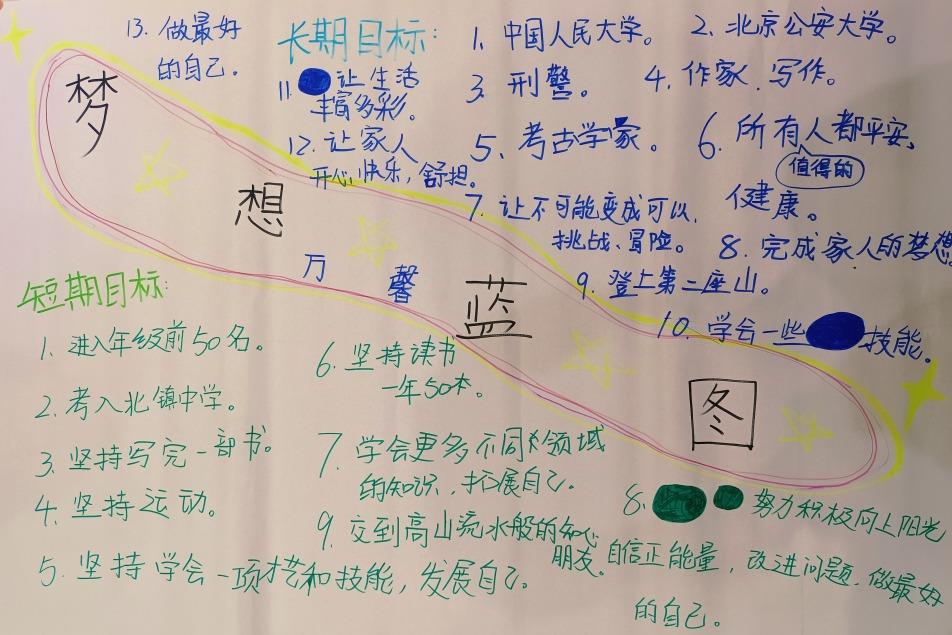 梦想蓝图
万馨
长期目标:
1. 中国人民大学。
2. 北京公安大学。
3. 刑警。
4. 作家.写作。
5、考古学家。
6. 所有人都平安、
值得的
健康。
7. 让不可能变成可以.
挑战、冒险。
8. 完成家人的梦想。
9. 登上第二座山。
10. 学会一些技能。
11. 让生活
丰富多彩。
12. 让家人
开心,快乐,舒坦。
13. 做最好
的自己。
短期目标:
1. 进入年级前50名。
2. 考入北镇中学。
3. 坚持写完一部书。
4. 坚持运动。
5. 坚持学会一项才艺和技能,发展自己。
6. 坚持读书
一年50本。
7. 学会更多不同领域
的知识.拓展自己。
8. 努力积极向上阳光
自信正能量,改进问题.做最好
的自己。
9. 交到高山流水般的知心
朋友。